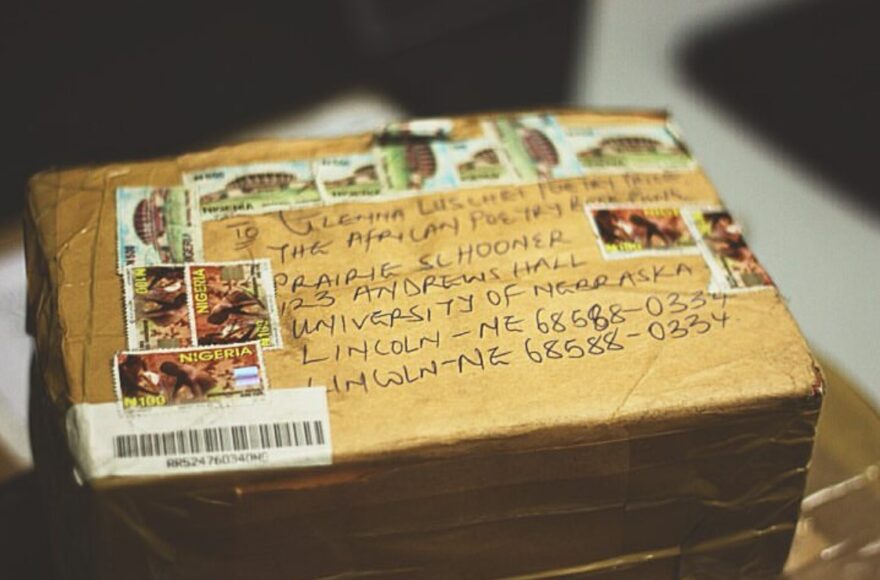 NIGERIA
NIGERIA
TO
GLENNA LUSCHEI POETRY PRIZE
THE AFRICAN POETRY BOOK FUND
PRAIRIE SCHOONER
123 ANDREWS HALL
UNIVERSITY OF NEBRASKA
LINCOLN-NE 68588-0334
LINCOLN-NE 68588-0334
N500
N100
NIGERIA
NIGERIA
N100
N100
RR524760340NG